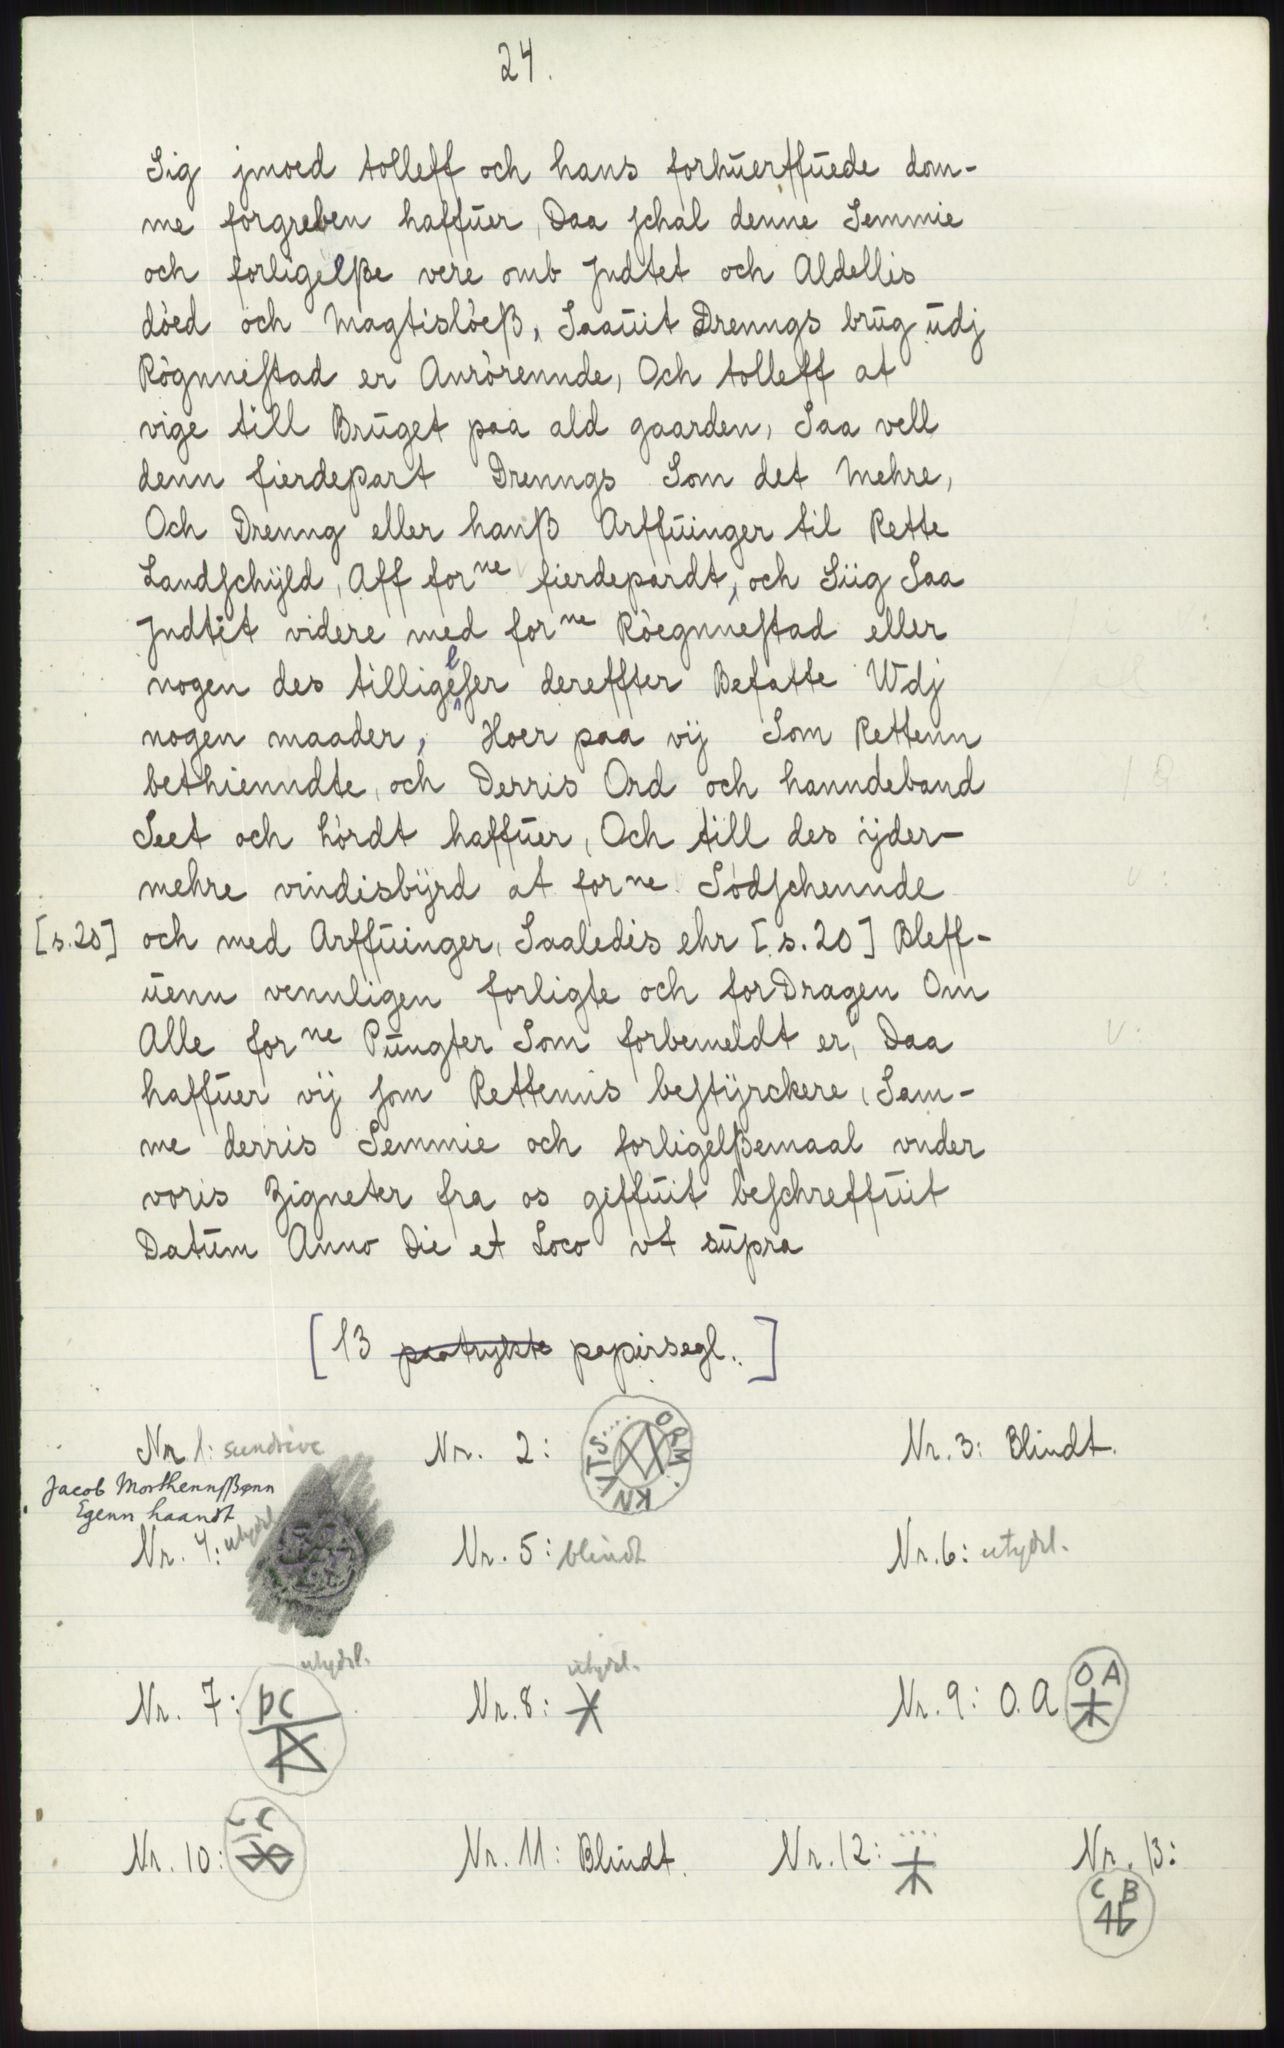 24.
Sig jmoed tolleff och hans forhuerffuede dom-
me forgreben haffuer, Daa schal denne Semmie
och forligelße vere omb Jndtet och Aldellis
döed och Magtislöeß, Saauit Drenngs brug udj
Rögnnestad er Anrörennde, Och tolleff at
vige till Bruget paa ald gaarden, Saa vell
denn fierdepart Drenngs Som det Mehre,
Och Drenng eller hanß Arffuinger til Rette
Landschyld, Aff forne fierdepardt, och Siig Saa
Jndtet videre med forne Röegnnestad eller
nogen des tilligelser dereffter Befatte Wdj
nogen maader, Hoer paa vij Som Rettenn
bethienndte, och Derris Ord och hanndeband
Seet och hördt haffuer, Och till des ijder-
mehre vindisbyrd at forne Södschennde
[s.20] och med Arffuinger, Saaledis ehr [s.20] Bleff-
uenn vennligen forligte och forDragen Om
Alle forne Pungter Som forbemeldt er, Daa
haffuer vij som Rettenns bestyrckere, Sam-
me derris Semmie och forligelßemaal vnder
voris Zigneter fra os giffuit beschreffuit
Datum Anno Die et Loco vt supra
[13 paatrykte papirsegl.]
Nr 1: sundrive Nr. 2: ORM. KNVTS.... Nr. 3: Blindt.
Jacob Morthennßønn
Egenn haandt
Nr. 4: utydel Nr. 5: blindt Nr. 6: utydel.
utydel. utydel.
Nr. 7: PC Nr. 8: Nr. 9: O.A OA
Nr. 10: C Nr. 11: Blindt. Nr. 12: .... Nr. 13:
C B